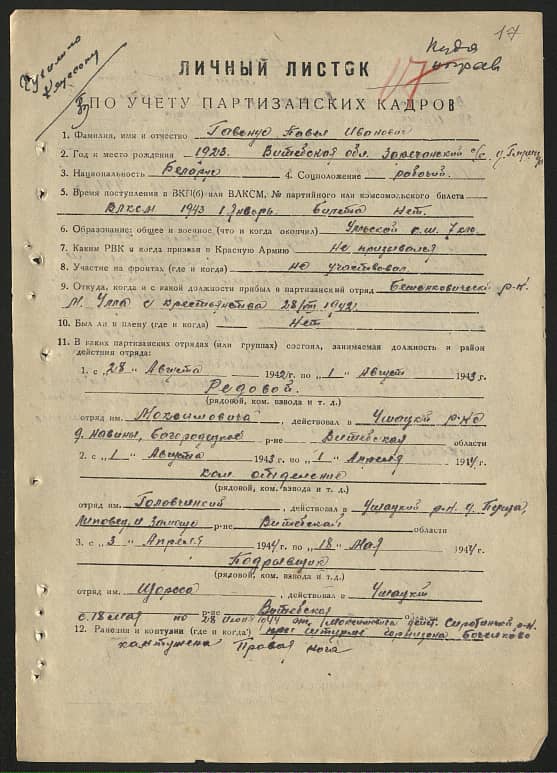 17
ЛИЧНЫЙ ЛИСТОК
117
ПО УЧЕТУ ПАРТИЗАНСКИХ КАДРОВ
1. Фамилия, имя и отчество Павел Иванович
2. Год и место рождения 1923. Витебская обл. Заречанский с/с
3. Национальность Беларус 4. Соцположение рабочий.
5. Время поступления в ВКП(б) или ВЛКСМ, № партийного или комсомольского билета
ВЛКСМ 1943 1 Январь. Билета Нет.
6. Образование: общее и военное, (что и когда окончил) Ульской с.ш. 7 кл.
7. Каким РВК и когда призван в Красную Армию Не призывался
8. Участие на фронтах (где и когда) не участвовал.
9. Откуда, когда и с какой должности прибыл в партизанский отряд Бешенковический р-н.
М. Улла с крестьянства 28/VIII 1942
10. Был ли в плену (где и когда) Нет
11. В каких партизанских отрядах (или группах) состоял, занимаемая должность и район
действия отряда:
1. с „28" Августа 1942 г. по „1" Август 1943 г.
Редовой.
(рядовой, ком. взвода и т. д.)
отряд им. Максимовича, действовал в Ушацкий р-не
р-не Витебская области
2. с „1" Августа 1943 г. по „1" Апреля 1944 г.
ком отделению
(рядовой, ком. взвода и т. д.)
отряд им. , действовал в Ушацкий р-н.
р-не Витебской области
3. с „3" Апреля 1944 г. по „18" Мая 1944 г.
Подрывщик
(рядовой, ком. взвода и т. д.)
отряд им. Щорса, действовал в Ушацкий
р-не Витебская области
с 18 мая по 28 июня 1944 от. Максимовича дейст. Сиротинский р-н.
12. Ранения и контузии (где и когда) при штурме гарнизона
контужена Правая нога